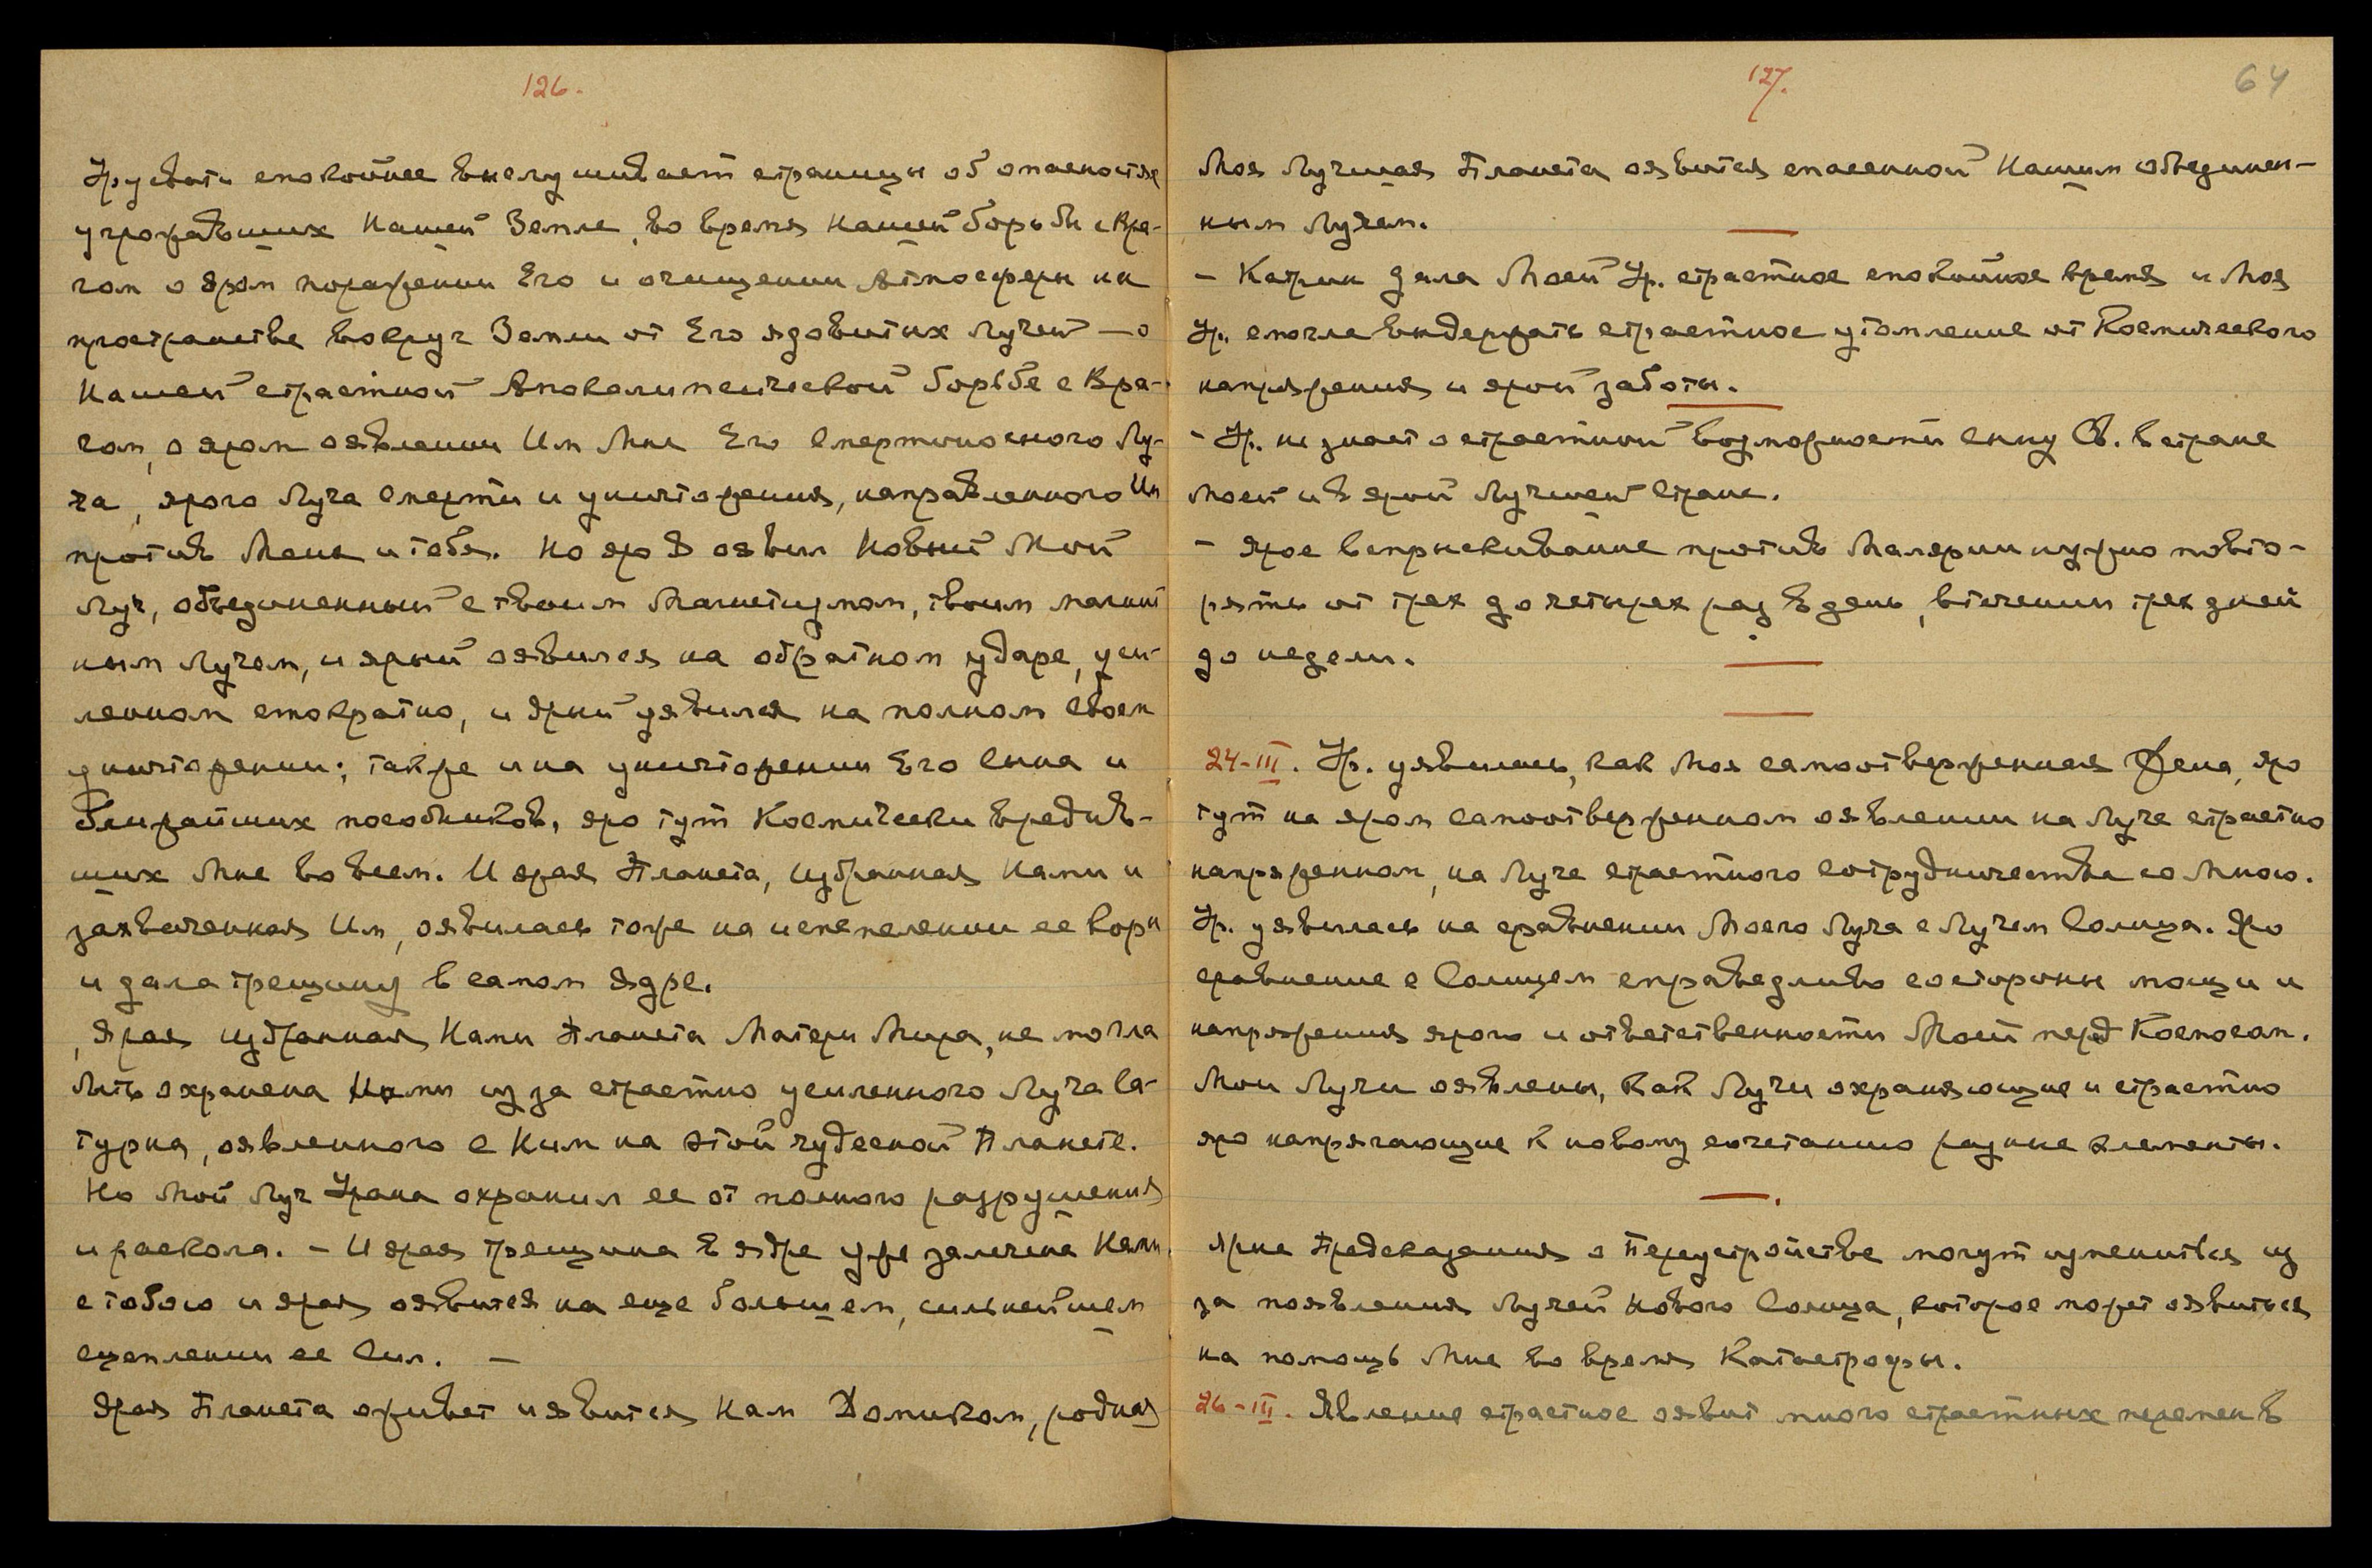 126.
Урусвати спокойнее выслушивает страницы об опасностях
угрожавших Нашей Земле, во время Нашей борьбы с Вра-
гом о яром поражении Его и очищении Атмосферы на
пространстве вокруг Земли от Его ядовитых Лучей — о
Нашей страстной Апокалипсической борьбе с Вра-
гом, о яром оявлении Им Мне Его Смертоносного Лу-
ча, ярого Луча Смерти и уничтожения, направленного Им
против Меня и тебя. Но яро Я оявил Новый Мой
Луч, объединенный с твоим Магнетизмом, твоим магнит
ным Лучом, и ярый оявился на обратном ударе, уси-
ленном стократно, и Ярый уявился на полном Своем
уничтожении; также и на уничтожении Его Сына и
ближайших пособников, яро тут Космически вредив-
ших Мне во всем. И ярая Планета, избранная Нами и
захваченная Им, оявилась тоже на испепелении ее коры
и дала трещину в самом Ядре.
Ярая избранная Нами Планета Матери Мира, не могла
быть охранена Нами из за страстно усиленного Луча Са-
турна, оявленного с Ним на этой чудесной Планете.
Но Мой Луч Урана охранил ее от полного разрушения
и раскола. - И ярая трещина в ядре уже залечена Нами
с тобою и ярая оявится на еще большем, сильнейшем
сцеплении ее Сил. —
Ярая Планета оживет и явится Нам Домиком, родная
127.
64
Моя Лучшая Планета оявится спасенной Нашим объединен-
ным Лучем.
- Катрин дала Моей Ур. страстное спокойное время и Моя
Ур. смогла выдержать страстное утомление от Космического
напряжения и ярой заботы.
- Ур. не знает о страстной возможности сыну Св. в стране
Моей и в ярой Лучшей Стране.
- Ярое вспрыскивание против Малярии нужно повто-
рять от трех до четырех раз в день, в течении трех дней
до недели.
24-III. Ур. уявилась, как Моя самоотверженная Жена, яро
тут на яром самоотверженном оявлении на Луче страстно
напряженном, на Луче страстного сотрудничества со Мною.
Ур. уявилась на сравнении Моего Луча с Лучем Солнца. Яро
сравнение с Солнцем справедливо со стороны мощи и
напряжения ярого и ответственности Моей перед Космосом.
Мои Лучи оявлены, как Лучи охраняющие и страстно
яро напрягающие к новому сочетанию разные элементы.
Ярые Предсказания о Переустройстве могут измениться из
за появления Лучей Нового Солнца, которое может оявиться
на помощь Мне во время Катастрофы.
26-III. Явление страстное оявит много страстных перемен в